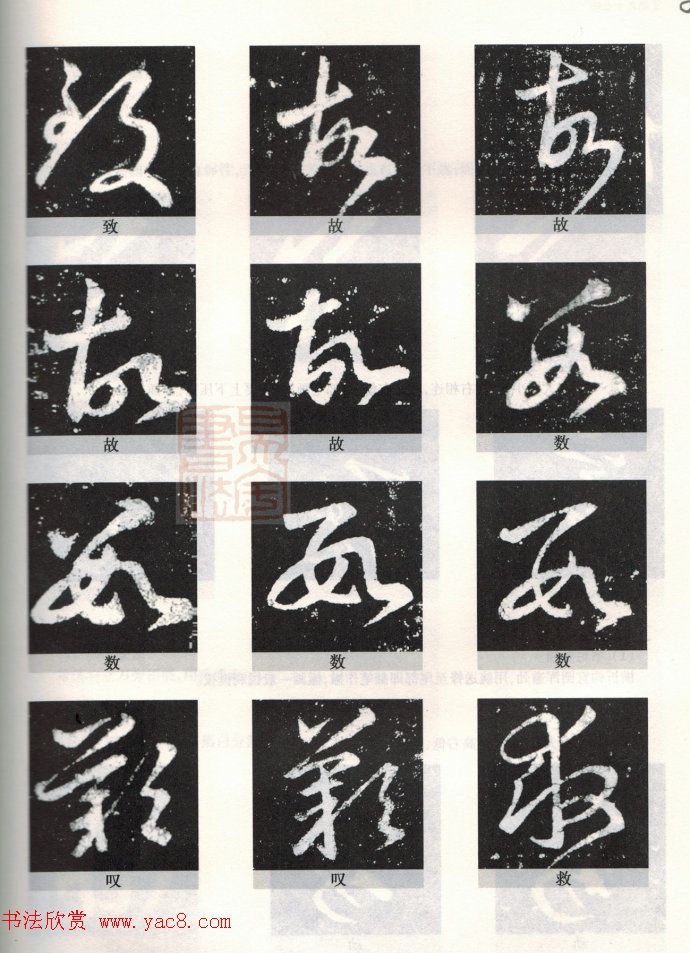 致 故 故
故 故 数
数 数 数
叹 叹 救
书法欣赏 www.yac8.com